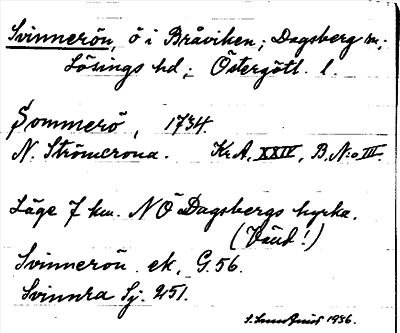 Svinnerön, ö i Bråviken; Dagsberg sn;
Lösings hd; Östergötl. l.
Sommerö, 1734.
N. Strömcrona. Kr.A, XXIV, B. N:o III.
Läge 7 km. NÖ Dagsbergs kyrka.
(Vänd!)
Svinnerön ek, G. 56.
Svinnra Sj. 251.
1936.